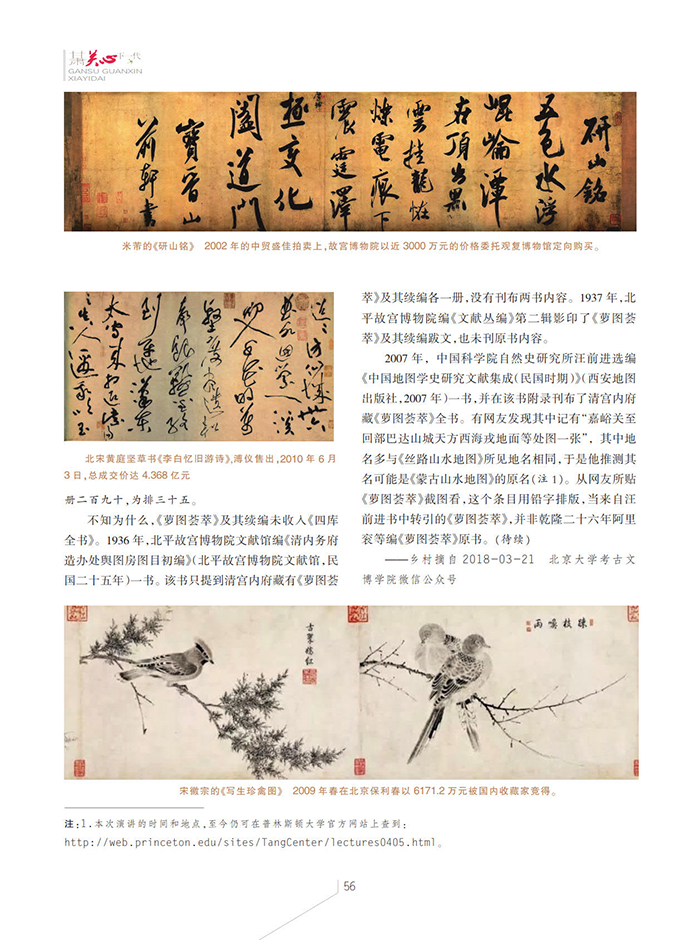 甘肃关心下一代
GANSU GUANXIN
XIAYIDAI
研山铭
五色水浮
崐崘潭
在顶出黑
雲挂龍怪
爍電痕下
震霆澤
極变化
阖道門
寶晋山
前轩書
米芾的《研山铭》 2002 年的中贸盛佳拍卖上,故宫博物院以近 3000 万元的价格委托观复博物馆定向购买。
北宋黄庭坚草书《李白忆旧游诗》,溥仪售出,2010 年 6 月
3 日,总成交价达 4.368 亿元
册二百九十,为排三十五。
不知为什么,《萝图荟萃》及其续编未收人《四库
全书》。1936 年,北平故宫博物院文献馆编《清内务府
造办处舆图房图目初编》(北平故宫博物院文献馆,民
国二十五年)一书。该书只提到清宫内府藏有《萝图荟
萃》及其续编各一册,没有刊布两书内容。1937 年,北
平故宫博物院编《文献丛编》第二辑影印了《萝图荟
萃》及其续编跋文,也未刊原书内容。
2007 年,中国科学院自然史研究所汪前进选编
《中国地图学史研究文献集成(民国时期)》(西安地图
出版社,2007 年)一书,并在该书附录刊布了清宫内府
藏《萝图荟萃》全书。有网友发现其中记有“嘉峪关至
回部巴达山城天方西海戎地面等处图一张”,其中地
名多与《丝路山水地图》所见地名相同,于是他推测其
名可能是《蒙古山水地图》的原名(注 1)。从网友所贴
《萝图荟萃》截图看,这个条目用铅字排版,当来自汪
前进书中转引的《萝图荟萃》,并非乾隆二十六年阿里
衮等编《萝图荟萃》原书。(待续)
——乡村摘自 2018-03-21 北京大学考古文
博学院微信公众号
杏翠鸚紅
疎枝喚雨
宋徽宗的《写生珍禽图》 2009 年春在北京保利春以 6171.2 万元被国内收藏家竞得。
注:1.本次演讲的时间和地点,至今仍可在普林斯顿大学官方网站上查到:
http://web.princeton.edu/sites/TangCenter/lectures0405.html。
56